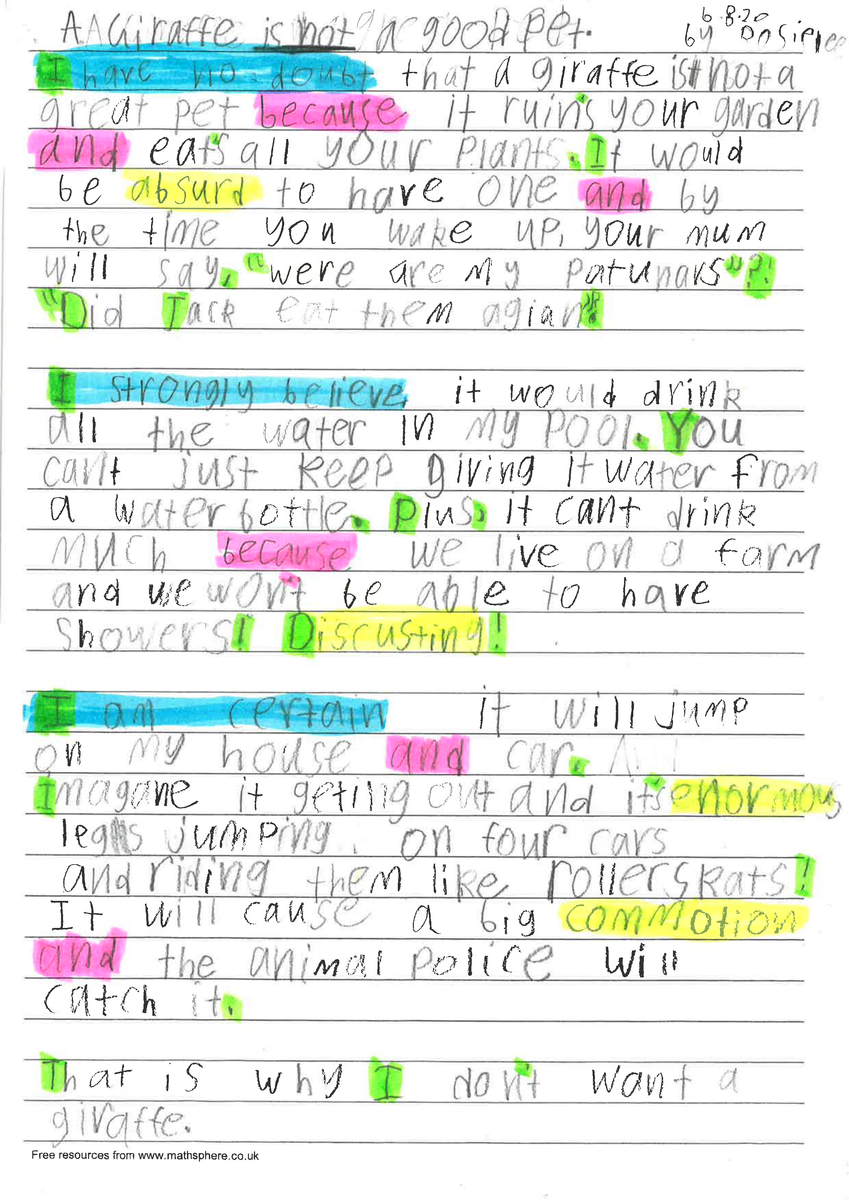 A Giraffe is not a good pet.
6.8.20
by
I have no doubt that a giraffe is not a
great pet because it ruin's your garden
and eat's all your plants. It would
be absurd to have one and by
the time you wake up, your mum
will say, "were are my patunars"?!
"Did Jack eat them agian"?
I strongly believe it would drink
all the water in my pool. You
cant just keep giving it water from
a water bottle. Plus, it cant drink
much because we live on a farm
and we won't be able to have
showers! Discusting!
I am certain it will jump
on my house and car.
Imagane it geting out and it's enormous
legs jumping on four cars
and riding them like rollerskats!
It will cause a big commotion
and the animal police will
catch it.
That is why I don't want a
giraffe.
Free resources from www.mathsphere.co.uk